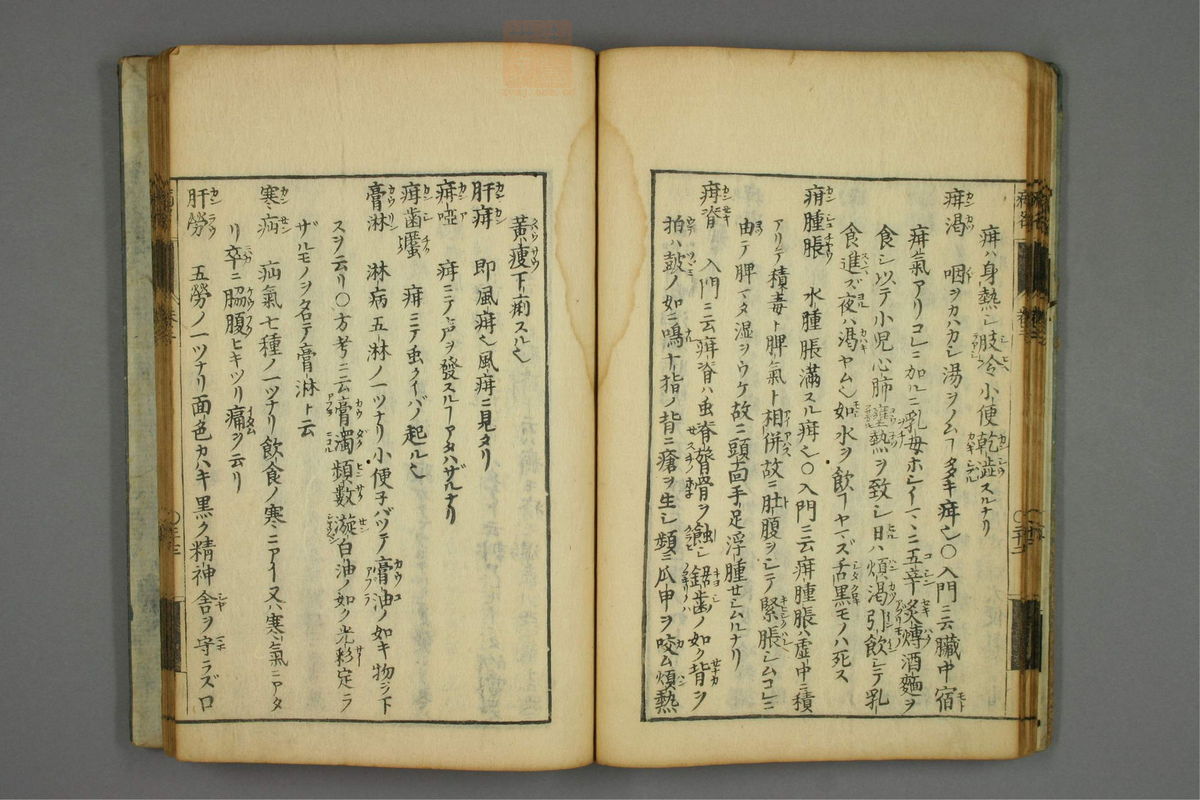 疳ハ身熱シ肢冷小便乾澁スルナリ
疳渇 咽ヲカハカシ湯ヲノムヿ多キ疳也○入門ニ云臓中宿
疳氣アリコレニ加ルニ乳母ホシイマヽニ五辛炙煿酒麺ヲ
食シ以テ小児心肺壅熱ヲ致シ日ハ煩渇引飲シテ乳
食進マズ夜ハ渇ヤム也如水ヲ飲ヿヤマズ舌黒モノハ死ス
疳腫脹 水腫脹滿スル疳也○入門ニ云疳腫脹ハ虚中ニ積
アリテ積毒ト脾氣ト相併故ニ肚腹ヲシテ緊脹シムコレニ
由テ脾マタ湿ヲウケ故ニ頭面手足浮腫セシムルナリ
疳脊 入門ニ云疳脊ハ虫脊膂骨ヲ蝕シ鋸歯ノ如ク背ヲ
拍ハ鼓ノ如ニ鳴十指ノ背ニ瘡ヲ生シ頻ニ爪甲ヲ咬ム煩熱
黄痩下痢スル也
肝疳 即風疳也風疳ニ見タリ
疳啞 疳ニテ声ヲ發スルヿアタハザルナリ
疳歯䘌 疳ニテ虫クイバノ起ル也
膏淋 淋病五淋ノ一ツナリ小便子バツテ膏油ノ如キ物ヲ下
スヲ云リ○方考ニ云膏濁頻數漩白油ノ如ク光彩定ラ
ザルモノヲ名テ膏淋ト云
寒疝 疝氣七種ノ一ツナリ飲食ノ寒ニアイ又ハ寒氣ニアタ
リ卒ニ脇腹ヒキツリ痛ヲ云リ
肝勞 五勞ノ一ツナリ面色カハキ黒ク精神舎ヲ守ラズロ